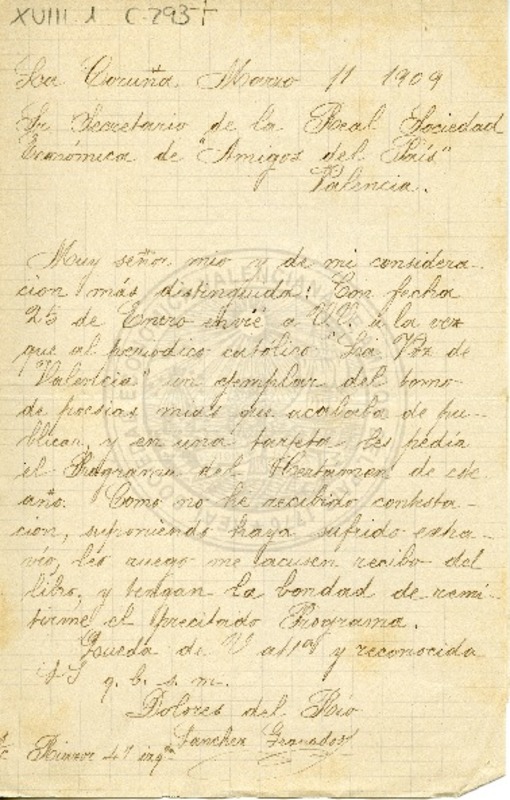 XVIII 1 C-293+
La Coruña Marzo 11 1909
Sr Secretario de la Real Sociedad
Económica de "Amigos del País"
Valencia.
Muy señor mio y de mi considera-
cion más distinguida: Con fecha
25 de Enero envié a U.U. a la vez
que al periódico católico "La Voz de
Valencia" un ejemplar del tomo
de poesias mias que acababa de pu-
blicar, y en una tarjeta les pedía
el Programa del Certamen de ese
año. Como no he recibido contesta-
cion, suponiendo haya sufrido extra-
vio, les ruego me acusen recibo del
libro, y tengan la bondad de remi-
tirme el precitado Programa.
Queda de V attª y reconocida
S S q. b. s. m.
Dolores del Río
Sanchez Granados
Riazor 47